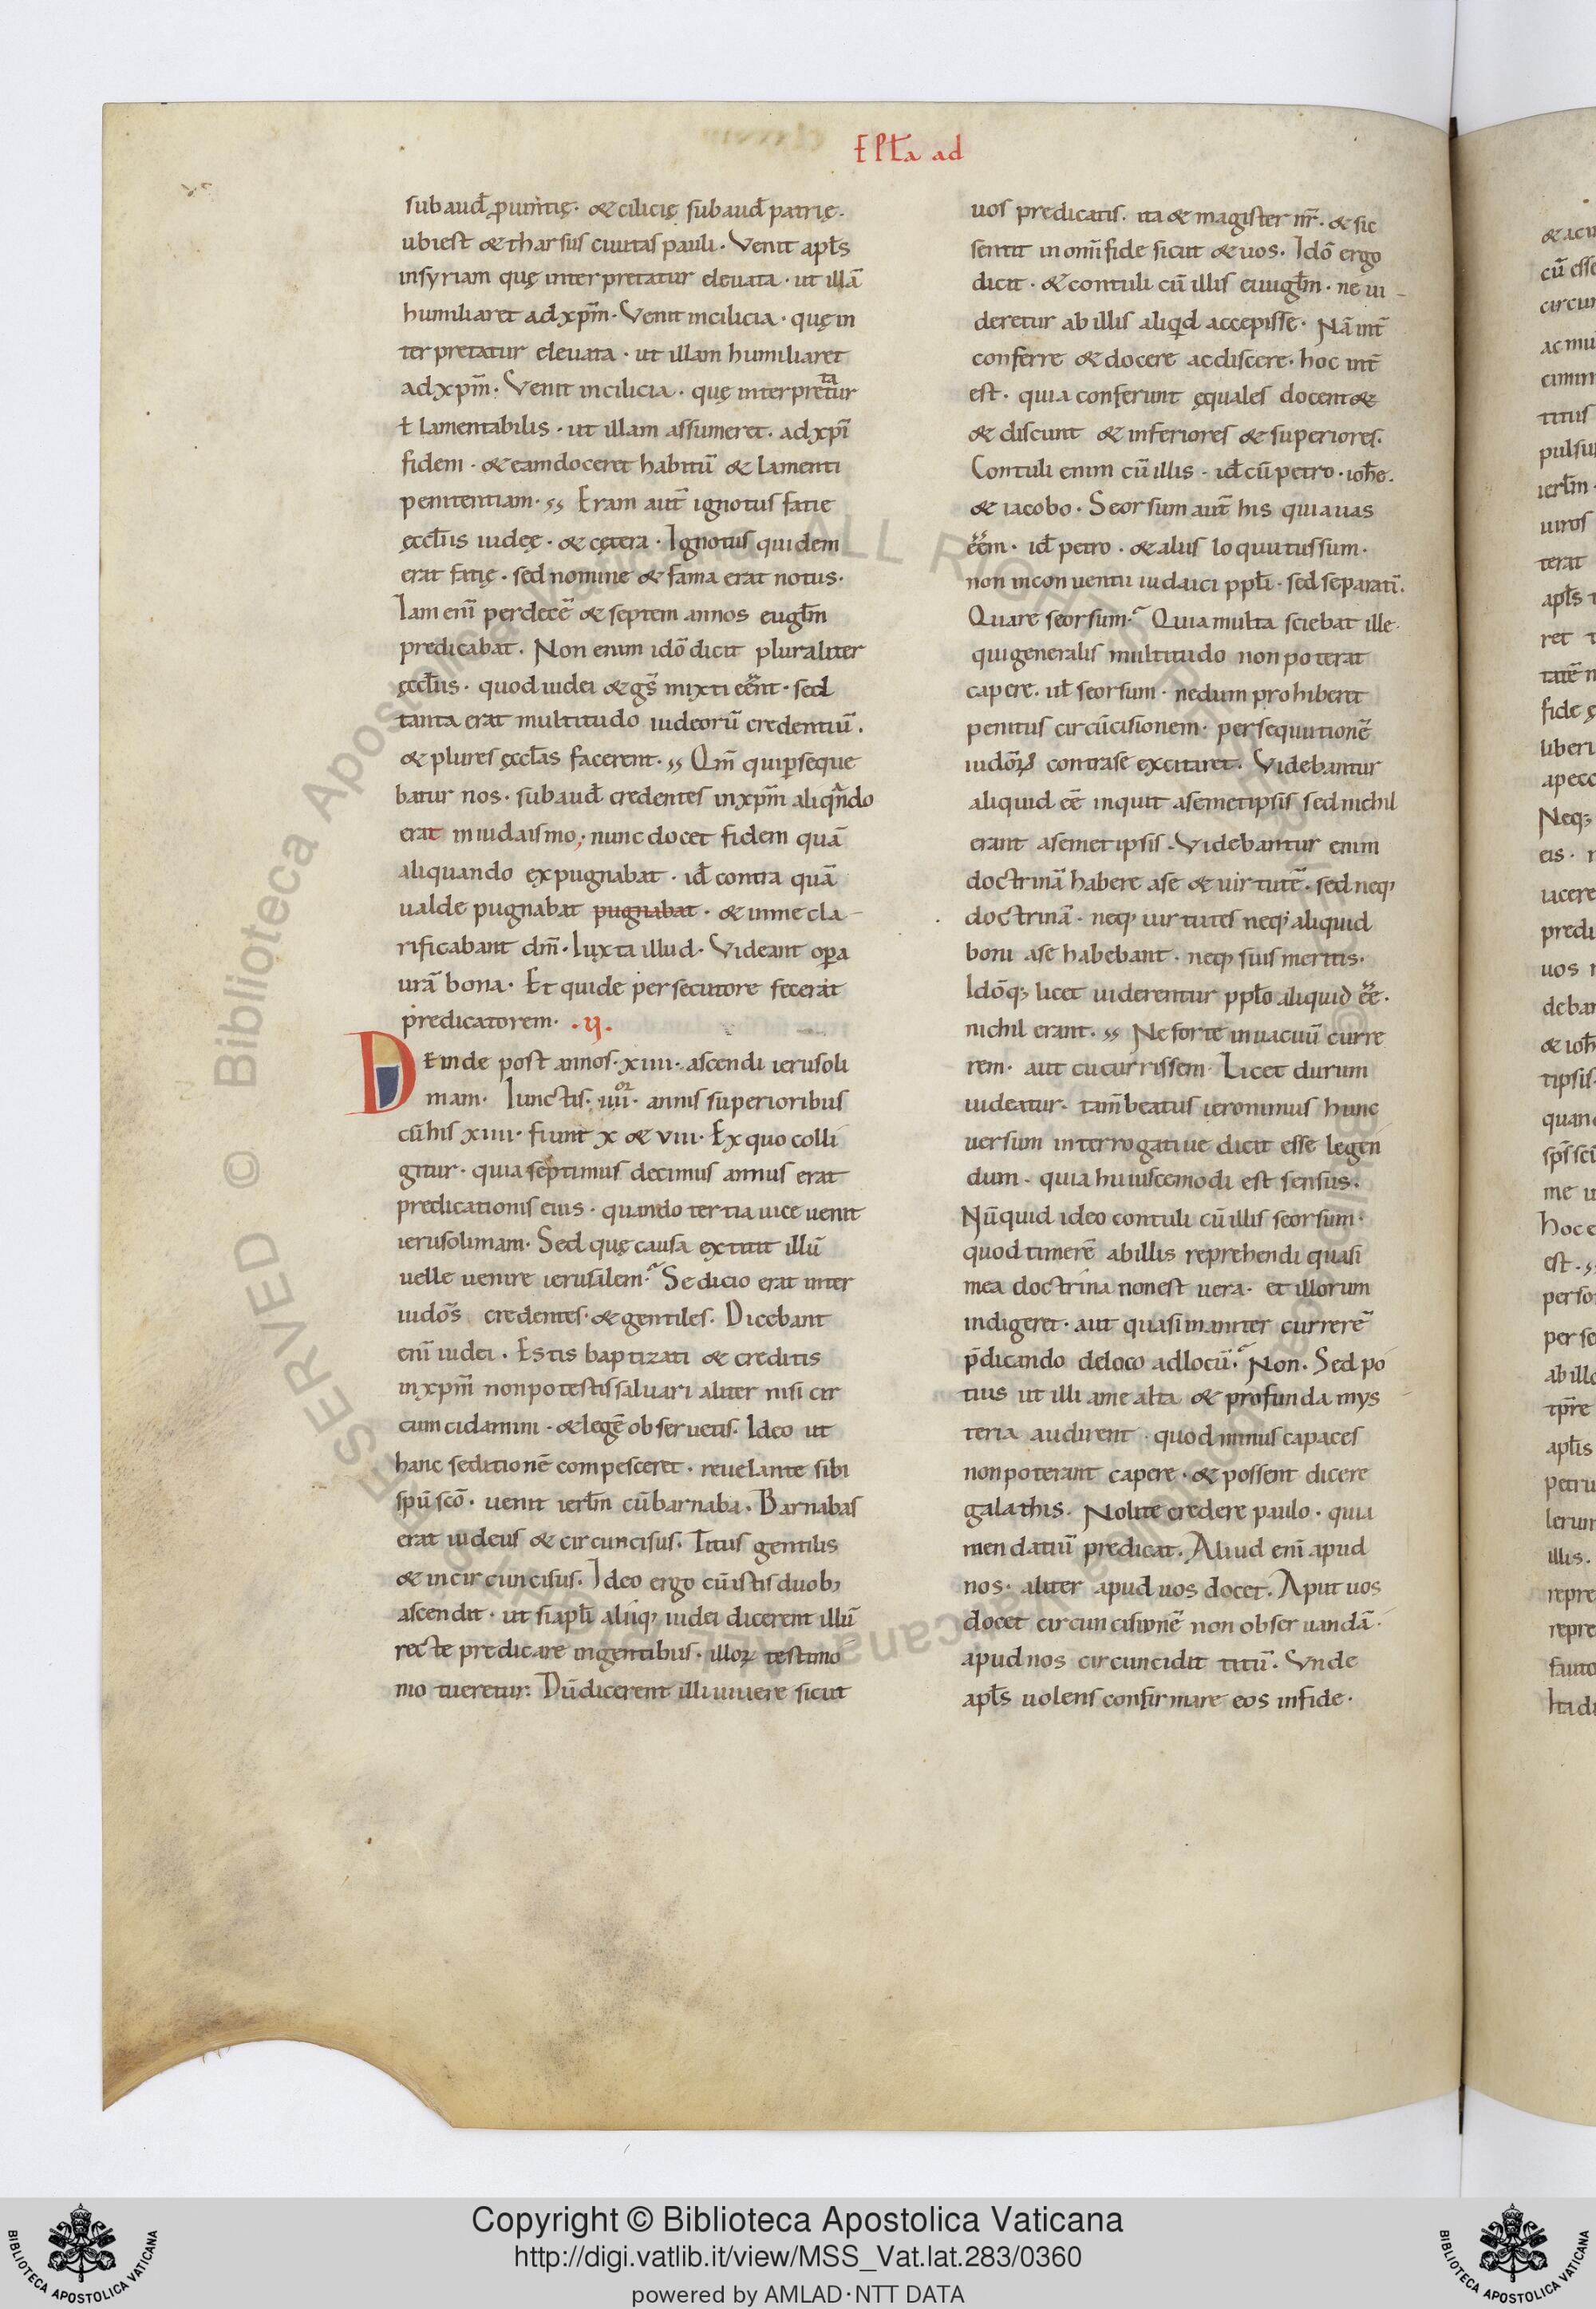 EPŁa ad
subaud̄ prouintię· & cilicię subaud̄ patrię·
ubi est & tharsus ciuitas pauli· Venit apl̄s
in syriam quę interpretatur eleuata · ut illā
humiliaret ad xp̄m· Venit in cilicia · quę in
terpretatur eleuata · ut illam humiliaret
ad xp̄m· Venit in cilicia · quę interpretatur
ł lamentabilis · ut illam assumeret· ad xp̄i
fidem · & eam doceret habitū & lamenti
penitentiam· ,, Eram aut̄ ignotus fatie
ęccl̄iis iudeę· & cętera · Ignotus quidem
erat fatię · sed nomine & fama erat notus·
Iam enī per decē & septem annos eugl̄m
predicabat · Non enim idō dicit pluraliter
ęccl̄iis · quod iudei & gs̄ mixti eēnt · sed
tanta erat multitudo iudeorū credentiū ·
& plures ęccl̄as facerent· ,, Qm̄ qui pseque
batur nos · subaud̄ credentes in xp̄m aliqn̄do
erat in iudaismo; nunc docet fidem quā
aliquando expugnabat · id̄ contra quā
ualde pugnabat pugnabat · & in me cla
rificabant dm̄ · Iuxta illud · Videant opa
urā bona· Et quidē persecutorē fecerat
predicatorem· ·ij·
DEinde post annos· xiiii· ascendi ierusoli
mam· Iunctis· iiii or· annis superioribus
cū his xiiii· fiunt x & viii· Ex quo colli
gitur · quia septimus decimus annus erat
predicationis eius · quando tertia uice uenit
ierusolimam· Sed quę causa extitit illū
uelle uenire ierusalem· Sedicio erat inter
iudōs credentes· & gentiles· Dicebant
enī iudei · Estis baptizati & creditis
in xp̄m non potestis saluari aliter nisi cir
cumcidamini · & legē obseruetis· Ideo ut
hanc seditionē compesceret · reuelante sibi
spū scō· uenit ierl̄m cū barnaba · Barnabas
erat iudeus & circuncisus· Titus gentilis
& incircuncisus· Ideo ergo cū istis duob;
ascendit · ut si apl̄i aliiq; iudei dicerent illū
recte predicare in gentibus · illoꝝ testimo
nio tueretur· Dū dicerent illi uiuere sicut
uos predicatis· ita & magister nr̄· & sic
sentit in omī fide sicut & uos· Idō ergo
dicit · & contuli cū illis euugl̄m · ne ui
deretur ab illis aliqd accepisse· Nā int̄
conferre & docere ac discere · hoc int̄
est · quia conferunt ęquales docent &
& discunt & inferiores & superiores·
Contuli enim cū illis · id̄ cū petro · ioh̄e·
& iacobo · Seorsum aut̄ his quia uas
eēm· id̄ petro · & aliis loquutus sum·
non in conuentu iudaici ppl̄i · sed separatī·
Quare seorsum· Quia multa sciebat ille·
qui generalis multitudo non poterat
capere· ut seorsum · nedum prohiberet
penitus circūcisionem· persequutionē
iudōꝝ contra se excitaret· Videbantur
aliquid eē inquit a semetipsis sed nichil
erant a semetipsis · Videbantur enim
doctrinā habere a se & uirtutē · sed neq;
doctrinā · neq; uirtutes neq; aliquid
boni a se habebant · neq; suis meritis·
Idōq; licet uiderentur pplo aliquid eē·
nichil erant· ,, Ne forte in uacuū curre
rem· aut cucurrissem· Licet durum
uideatur· tam̄ beatus ieronimus hunc
uersum interrogatiue dicit esse legen
dum · quia huiuscemodi est sensus·
Nūquid ideo contuli cū illis seorsum·
quod timerē ab illis reprehendi quasi
mea doctrina non est uera· et illorum
indigeret· aut quasi inaniter currerē
p̄dicando de loco ad locū· Non· Sed po
tius ut illi a me alta & profunda mys
teria audirent · quod minus capaces
non poterant capere · & possent dicere
galathis· Nolite credere paulo · quia
mendatiū predicat· Aliud enī apud
nos· aliter apud uos docet· Aput uos
docet circuncisionē non obseruandā·
apud nos circuncidit titū· Vnde
apl̄s uolens confirmare eos in fide·
Copyright © Biblioteca Apostolica Vaticana
http://digi.vatlib.it/view/MSS_Vat.lat.283/0360
powered by AMLAD·NTT DATA